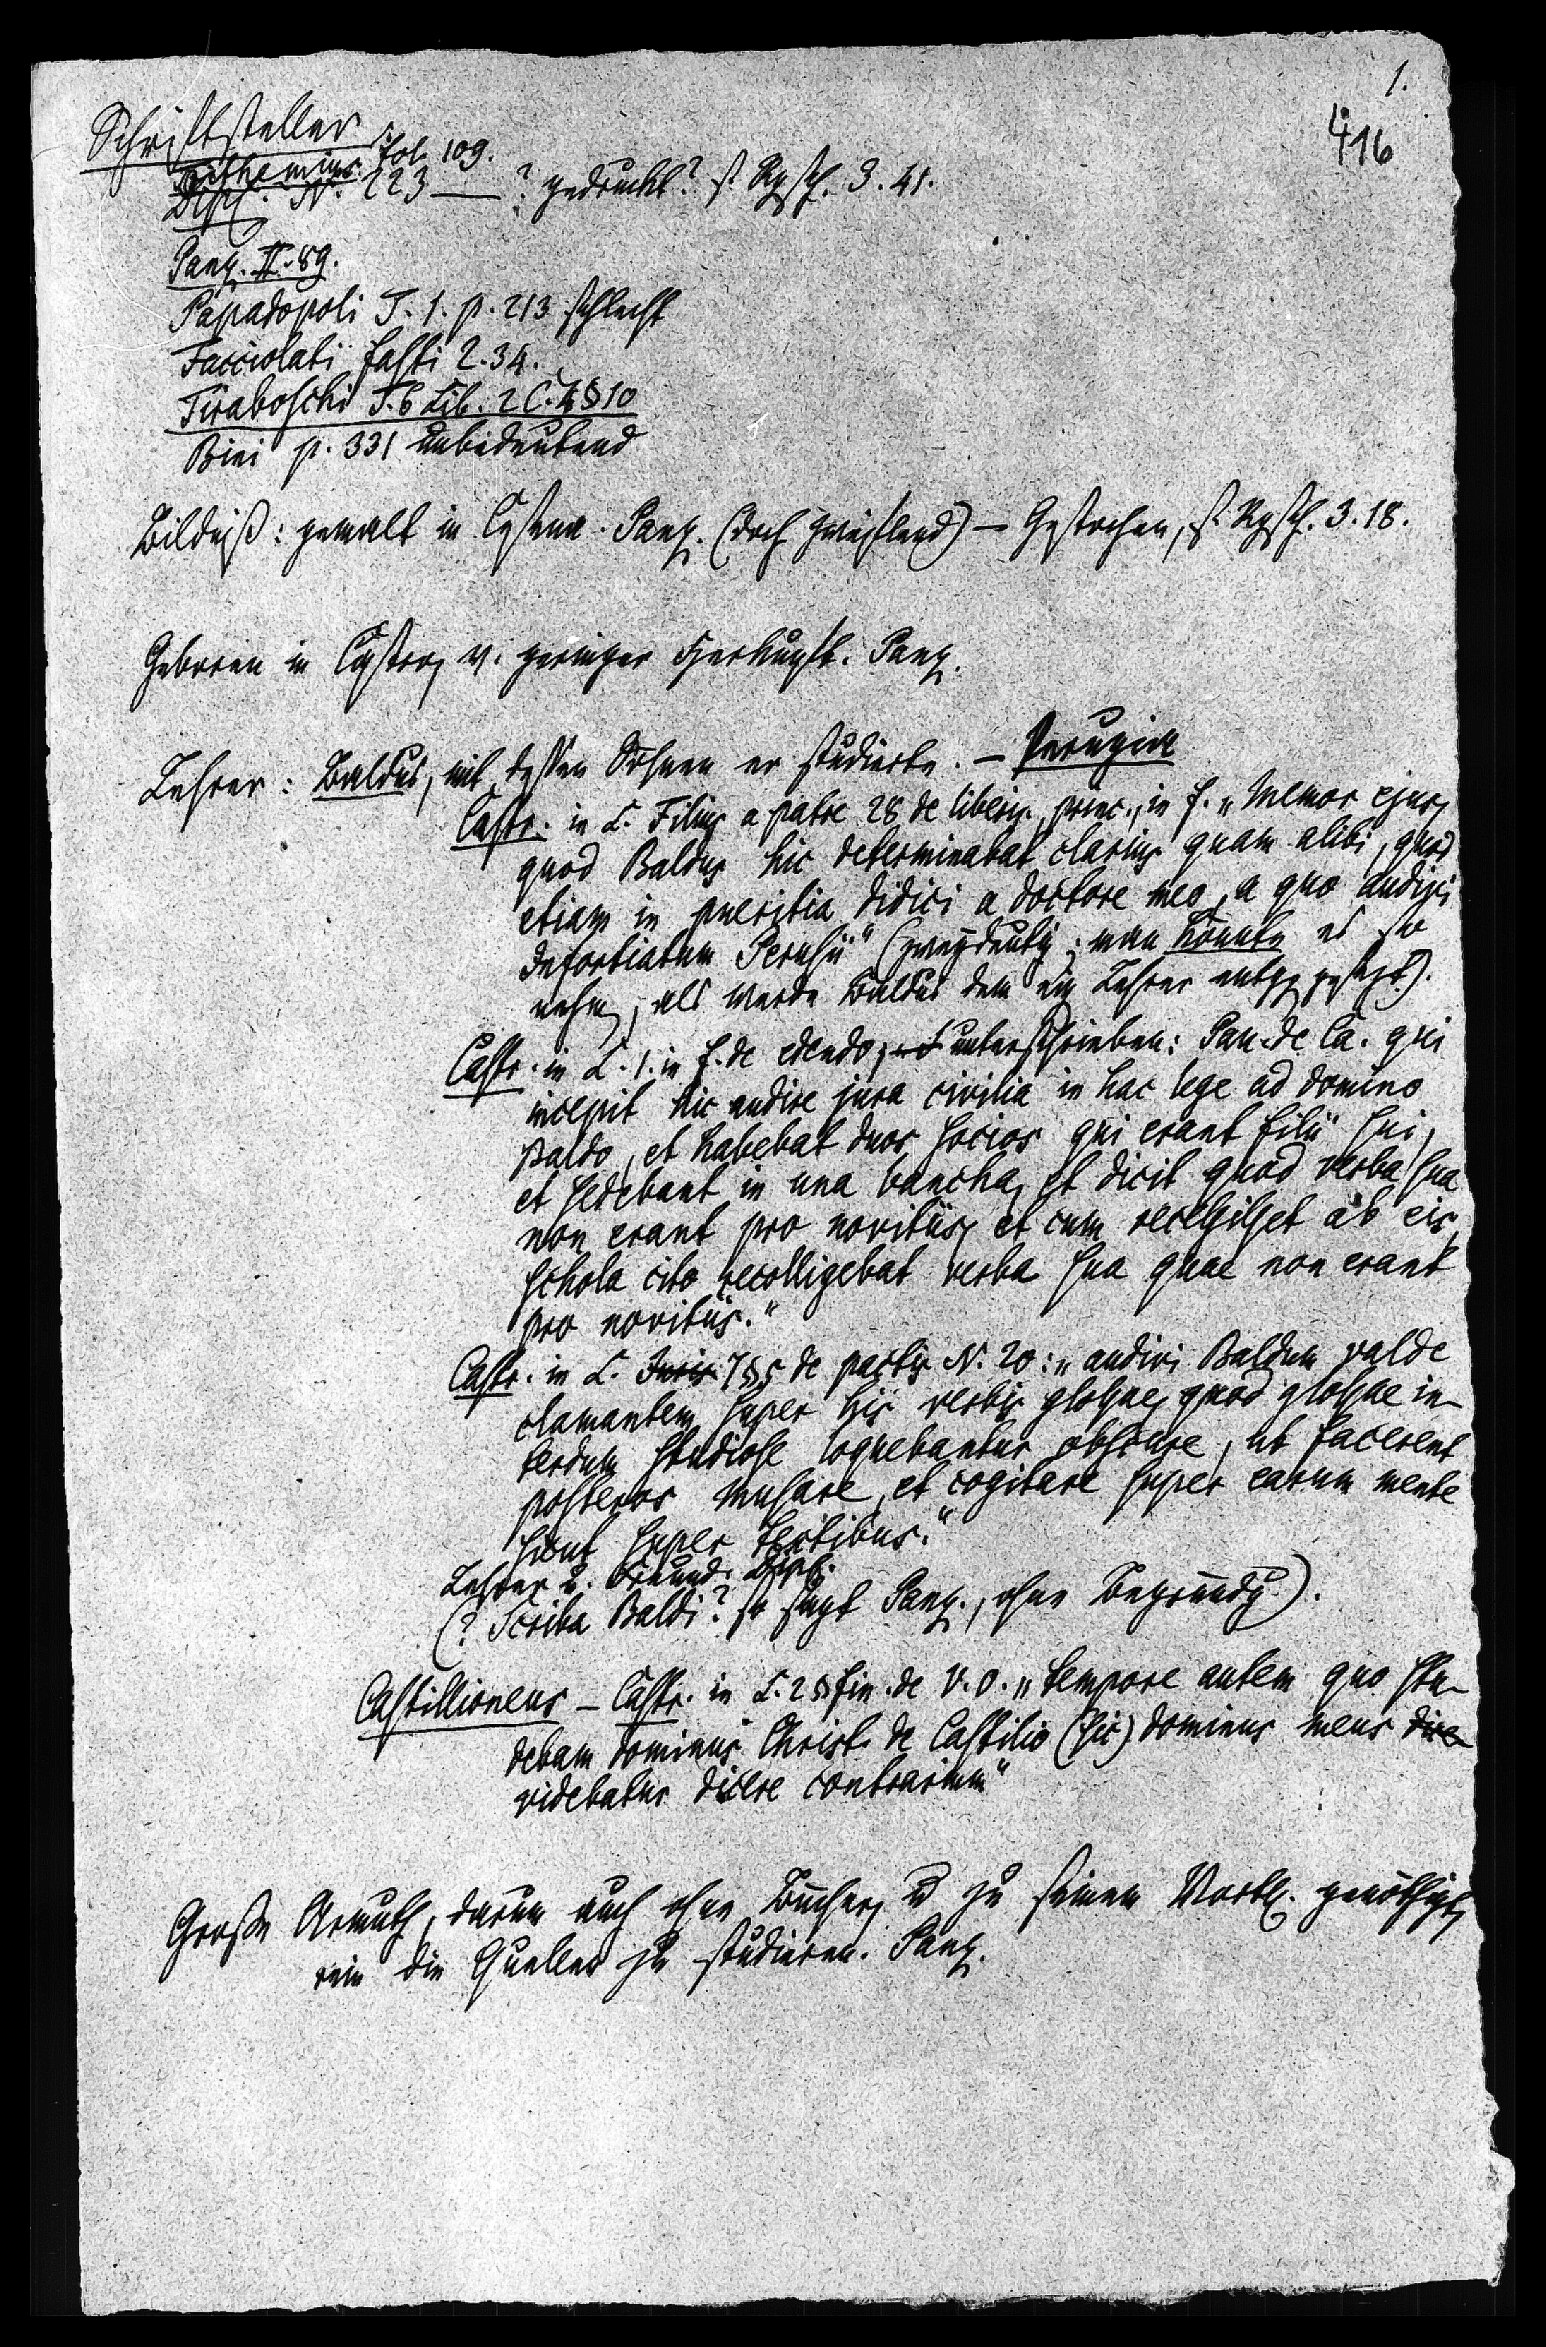 1.
416
Schriftsteller
Trithemius fol. 109.
Dipl. N. 223 — ? gedruckt? s. Rgsch. 3. 41.
Panz. II. 89.
Papadopoli T. 1. p. 213 schlecht
Facciolati fasti 2. 34.
Tiraboschi T. 6 Lib. 2 C. 4 § 10
Bini p. 331 unbedeutend
Bildniß: gemalt in Panz. (doch zweifelnd) — Gestochen, s. Rgsch. 3. 18.
Geboren in Castro, v. geringer Herkunft. Panz.
Lehrer: Baldus, mit dessen Söhnen er studierte. — Perugia
Castr. in L. Filius a patre 28 de liberis, princ., in f. „Memor ejus,
quod Baldus hic determinabat clarius quam alibi, quod
etiam in pueritia didici a doctore meo, a quo audivi
Infortiatum Perusii" (zweydeutig; man könnte es so
nehmen, als werde Baldus dem ein Lehrer entgegengesetzt).
Castr. in L. 1. in f. de edendo, unterschrieben: Pau. de Ca. qui
incepit hic audire jura civilia in hac lege ad domino
Baldo, et habebat duos socios qui erant filii sui,
et sedebant in una bancha, et dicit quod verba sua
non erant pro novitiis, et cum recessisset ab eis
schola cito recolligebat verba sua quae non erant
pro novitiis."
Castr. in L. 7 § 5 de pactis N. 20: „audivi Baldum valde
clamantem super his verbis glossae, quod glossae in-
terdum studiose loquebantur obscure, ut facerent
posteros musare, et cogitare super earum mente
sicut super textibus."
Lehrer u. Freund. Dipl.
(? Scriba Baldi? so sagt Panz., ohne Begründg.).
Castillioneus — Castr. in L. 2 § fin. de V. O. „tempore autem quo stu-
debam dominus Christ. de Castilio (sic) dominus meus
videbatur dicere contrarium"
Große Armuth, darum auch ohne Bücher, u zu seinem Vorth. genöthigt,
rein die Quellen zu studieren. Panz.